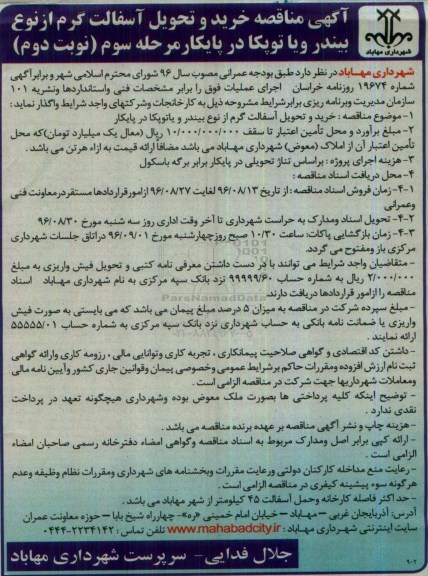 آگهی مناقصه خرید و تحویل آسفالت گرم از نوع
بیندر و یا توپکا در پایکار مرحله سوم (نوبت دوم)
شهرداری مهاباد
شهرداری مهاباد در نظر دارد طبق بودجه عمرانی مصوب سال ۹۶ شورای محترم اسلامی شهر و برابر آگهی
شماره ۱۹۶۷۴ روزنامه خراسان اجرای عملیات فوق را برابر مشخصات فنی واستانداردها ونشریه ۱۰۱
سازمان مدیریت وبرنامه ریزی برابر شرایط مشروحه ذیل به کارخانجات وشرکتهای واجد شرایط واگذار نماید:
۱- موضوع مناقصه: خرید و تحویل آسفالت گرم از نوع بیندر و یاتوپکا در پایکار
۲- مبلغ برآورد و محل تأمین اعتبار تا سقف ۱۰/۰۰۰/۰۰۰/۰۰۰ ریال (معال یک میلیارد تومان)که محل
تأمین اعتبار آن از املاک (معوض) شهرداری مهاباد می باشد مضافاً ارائه قیمت به ازاء هر تن می باشد.
۳- هزینه اجرای پروژه: براساس تناژ تحویلی در پایکار برابر برگه باسکول
۴- محل دریافت اسناد مناقصه:
۴-۱- زمان فروش اسناد مناقصه: از تاریخ ۹۶/۰۸/۱۳ لغایت ۹۶/۰۸/۲۷ ازامور قراردادها مستقردرمعاونت فنی
وعمرانی
۴-۲- تحویل اسناد ومدارک به حراست شهرداری تا آخر وقت اداری روز سه شنبه مورخ ۹۶/۰۸/۳۰
۴-۳- زمان بازگشایی پاکات: ساعت ۱۰/۳۰ صبح روز چهارشنبه مورخ ۹۶/۰۹/۰۱ دراتاق جلسات شهرداری
مرکزی باز ومفتوح می گردد.
- متقاضیان واجد شرایط می توانند با در دست داشتن معرفی نامه کتبی و تحویل فیش واریزی به مبلغ
۲/۰۰۰/۰۰۰ ریال به شماره حساب ۹۹۹۹۹/۶۰ نزد بانک سپه مرکزی به نام شهرداری مهاباد اسناد
مناقصه را ازامور قراردادها دریافت دارند.
- مبلغ سپرده شرکت در مناقصه به میزان ۵ درصد مبلغ پیمان می باشد که می بایستی به صورت فیش
واریزی یا ضمانت نامه بانکی به حساب شهرداری نزد بانک سپه مرکزی به شماره حساب ۵۵۵۵۵/۰۱
ارائه نمایند.
- داشتن کد اقتصادی و گواهی صلاحیت پیمانکاری، تجربه کاری وتوانایی مالی، رزومه کاری وارائه گواهی
ثبت نام ارزش افزوده ومقررات حاکم برشرایط عمومی وخصوصی پیمان وقوانین جاری کشور وآیین نامه مالی
ومعاملات شهرداریها جهت شرکت در مناقصه الزامی است.
- توضیح اینکه کلیه پرداختی ها بصورت ملک معوض بوده وشهرداری هیچگونه تعهد در پرداخت
نقدی ندارد.
- هزینه چاپ و نشر آگهی مناقصه بر عهده برنده مناقصه می باشد.
- ارائه کپی برابر اصل ومدارک مربوط به اسناد مناقصه وگواهی امضاء دفترخانه رسمی صاحبان امضاء
الزامی است.
- رعایت منع مداخله کارکنان دولتی ورعایت مقررات وبخشنامه های شهرداری ومقررات نظام وظیفه وعدم
هر گونه سوء پیشینه کیفری در مناقصه الزامی است.
- حداکثر فاصله کارخانه وحمل آسفالت ۴۵ کیلومتر از شهر مهاباد می باشد.
آدرس: آذربایجان غربی – مهاباد – خیابان امام خمینی «ره»- چهارراه شیخ بابا – حوزه معاونت عمران
سایت اینترنتی شهرداری مهاباد: www.mahabadcity.ir تلفن تماس: ۲۲۳۴۱۴۲-۰۴۴۴
جلال فدایی- سرپرست شهرداری مهاباد
۹۰۲